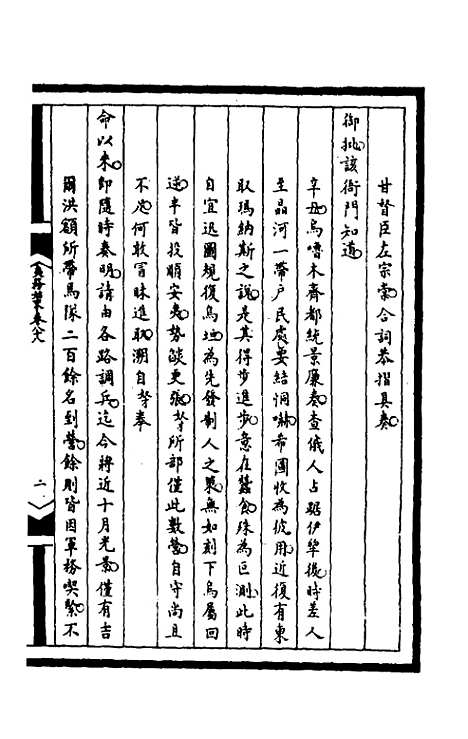 甘督臣左宗棠合詞恭摺具奏
御批該衙門知道
辛丑烏嚕木齊都統景廉奏查俄人占踞伊犂後時差人
至晶河一帶戶民處要結洞嚇希圖收為彼用近復有東
取瑪納斯之說是其得步進步意在蠶食殊為叵測此時
自宜迅圖規復烏垣為先發制人之策無如刻下烏屬回
逆半皆投順安夷勢燄更張等所部僅此數營自守尚且
不足何敢冒昧進取溯自等奉
命以來即隨時奏明請由各路調兵迄今將近十月光景僅有吉
爾洪額所帶馬隊二百餘名到營餘則皆因軍務喫緊不
二